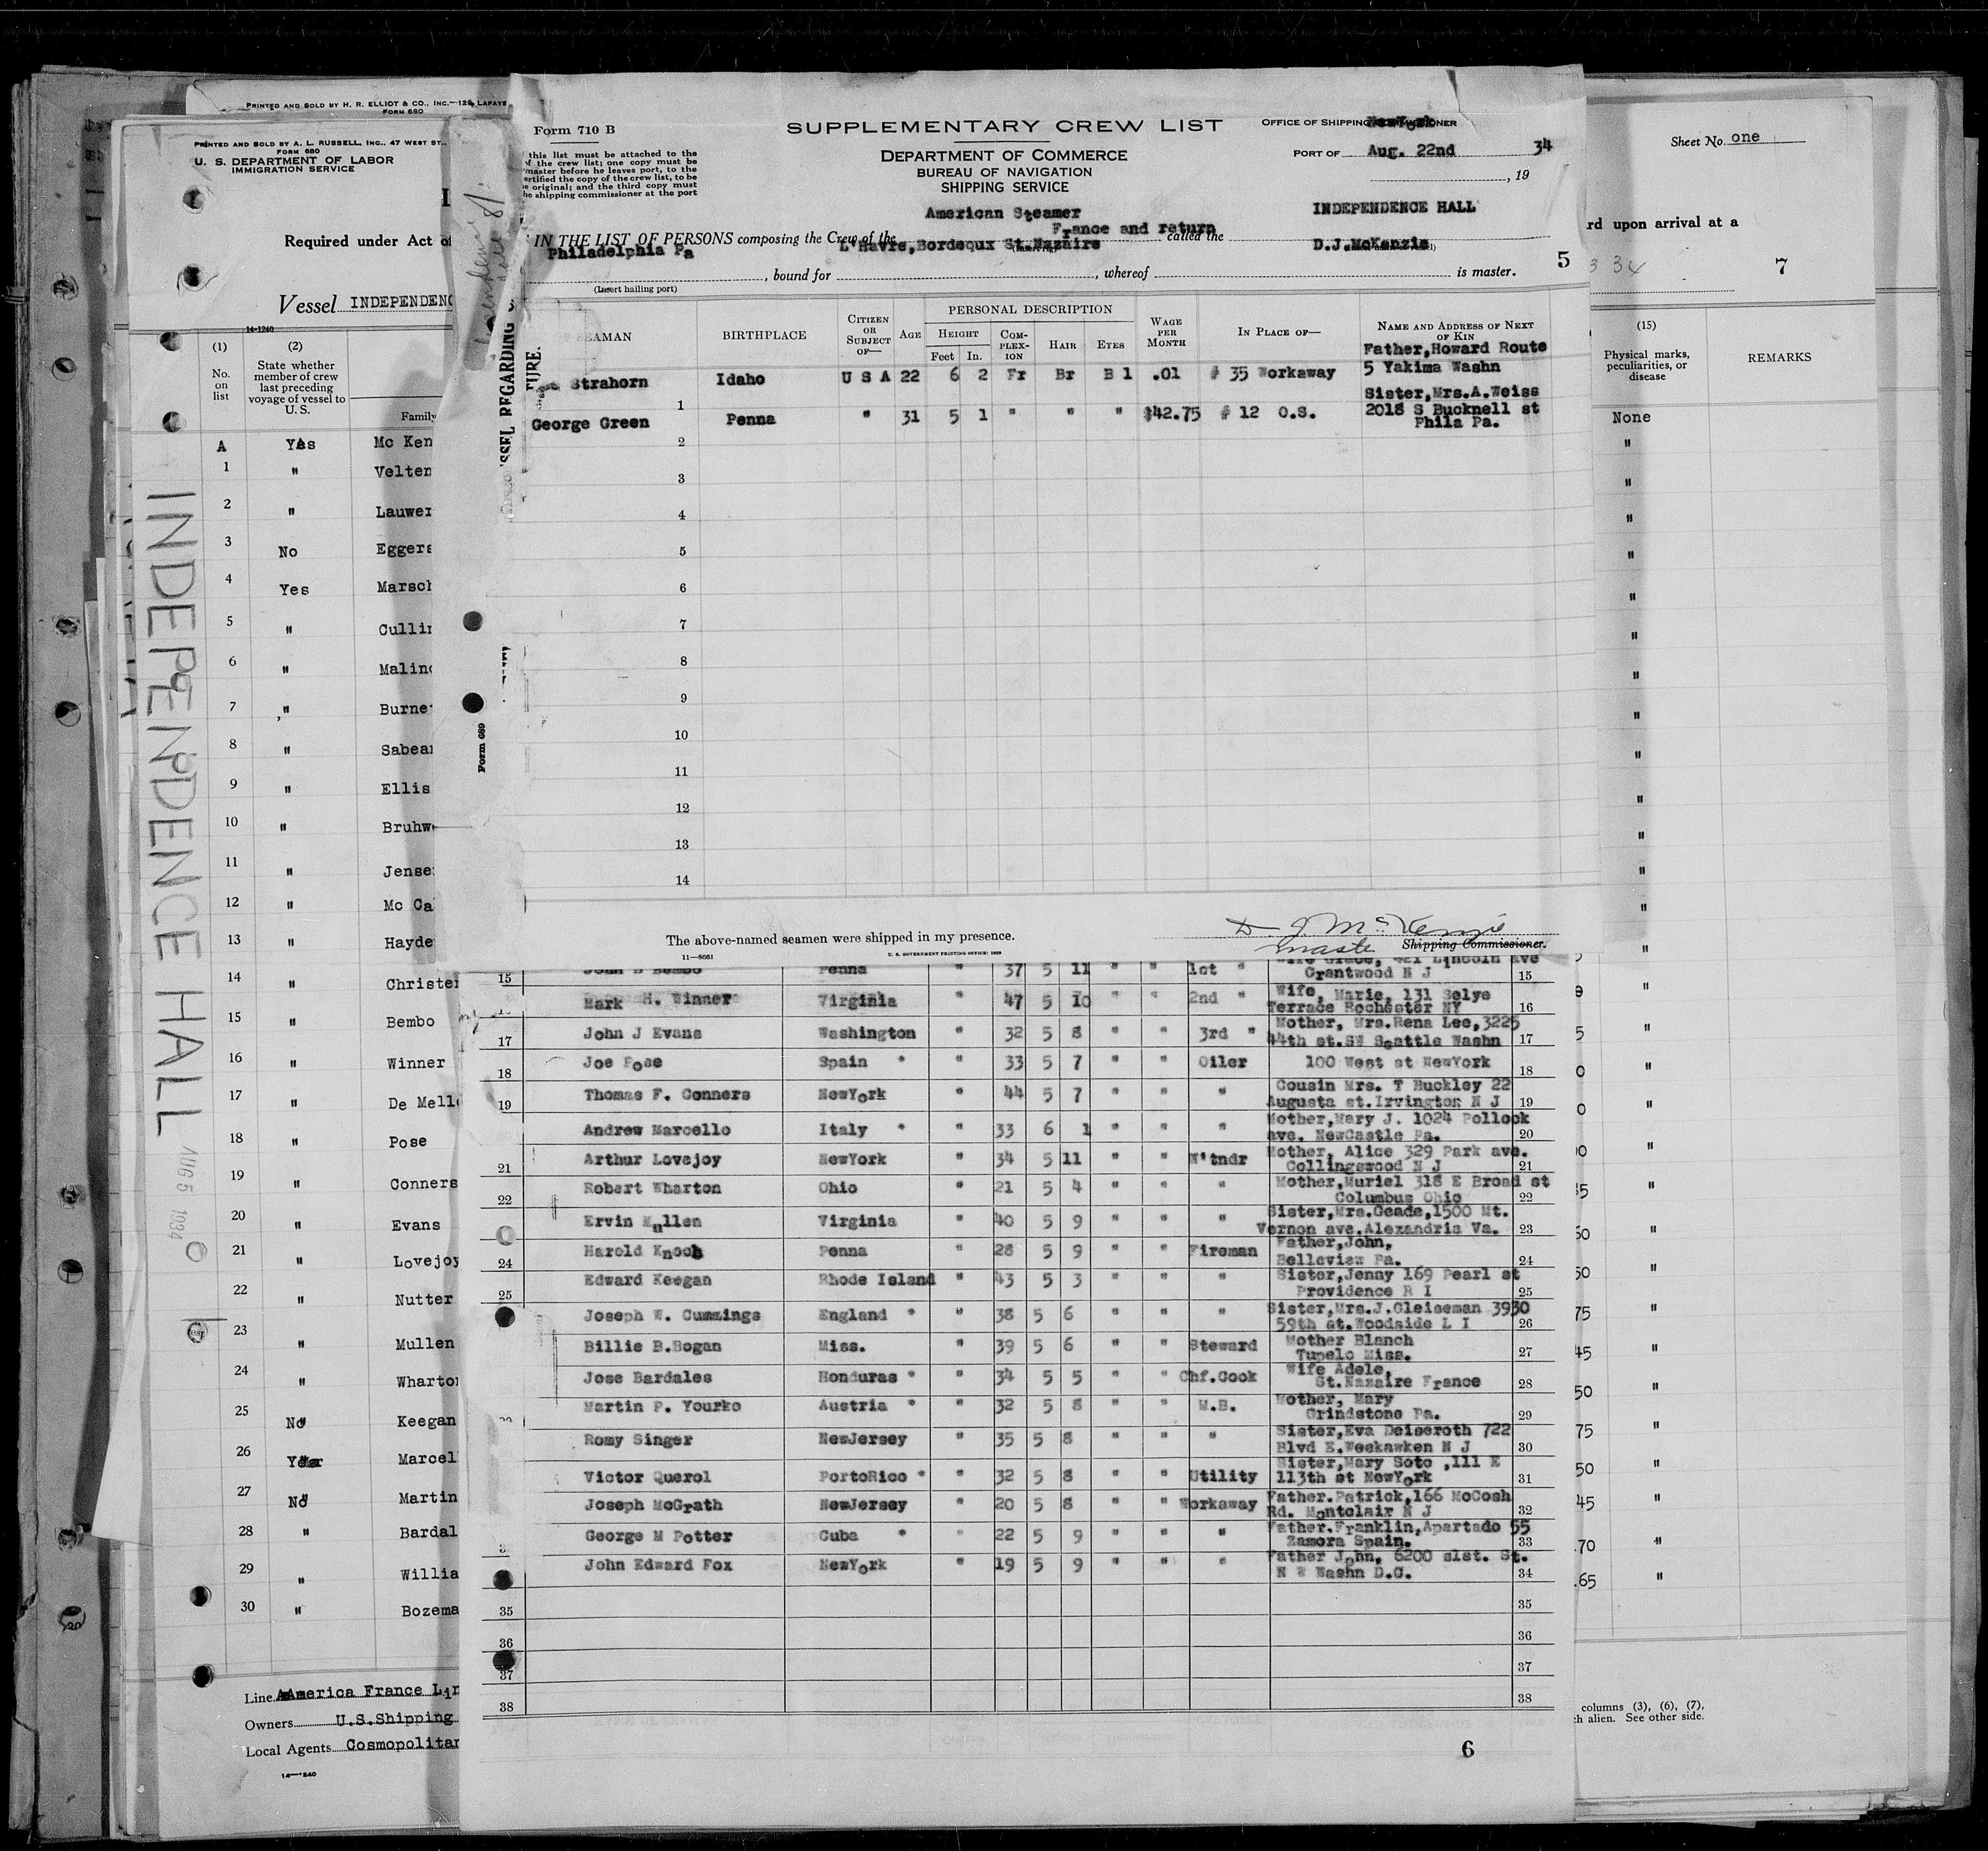 PRINTED AND SOLD BY H. R. ELLIOT & CO., INC.—129 LAFAYE
FORM 680
PRINTED AND SOLD BY A. L. RUSSELL, INC., 47 WEST ST.,
FORM 680
U. S. DEPARTMENT OF LABOR
IMMIGRATION SERVICE
Required under Act of
Vessel INDEPENDENC
14-1240
(1) (2)
No. on list
State whether member of crew last preceding voyage of vessel to U.S.
Family
A Yes Mc Ken
1 " Velten
2 " Lauwer
3 No Eggers
4 Yes Marsch
5 " Cullin
6 " Malino
7 " Burne
8 " Sabear
9 " Ellis
10 " Bruhw
11 " Jense
12 " Mc Ca
13 " Hayde
14 " Christe
15 " Bembo
16 " Winner
17 " De Mell
18 " Pose
19 " Conners
20 " Evans
21 " Lovejoy
22 " Nutter
23 " Mullen
24 " Wharto
25 No Keegan
26 Marcel
27 No Martin
28 " Bardal
29 " Willia
30 " Bozema
Line America France Lin
Owners U.S.Shipping
Local Agents Cosmopolitan
INDEPENDENCE HALL
AUG 5 1934
SSEL REGARDING
Form 689
Form 710 B
this list must be attached to the
f the crew list; one copy must be
master before he leaves port, to the
ertified the copy of the crew list, to be
e original; and the third copy must
he shipping commissioner at the port
SUPPLEMENTARY CREW LIST
DEPARTMENT OF COMMERCE
BUREAU OF NAVIGATION
SHIPPING SERVICE
OFFICE OF SHIPPING COMMISSIONER
NewYork
PORT OF Aug. 22nd 34
, 19
American Steamer INDEPENDENCE HALL
France and return
IN THE LIST OF PERSONS composing the Crew of the called the
L'Havre,Bordequx St.Nazaire D.J.McKenzie
Philadelphia Pa
, bound for , whereof is master.
(Insert hailing port)
5
SEAMAN BIRTHPLACE CITIZEN OR SUBJECT OF— AGE PERSONAL DESCRIPTION HEIGHT Feet In. COMPLEXION HAIR EYES WAGE PER MONTH IN PLACE OF— NAME AND ADDRESS OF NEXT OF KIN
Father,Howard Route
Strahorn Idaho U S A 22 6 2 Fr Br B l .01 # 35 Workaway 5 Yakima Washn
1 Sister,Mrs.A.Weiss
George Green Penna " 31 5 1 " " " $42.75 # 12 O.S. 2018 S Bucknell st
2 Phila Pa.
3
4
5
6
7
8
9
10
11
12
13
14
The above-named seamen were shipped in my presence.
D. J. McKenzie
Master Shipping Commissioner.
11—8661 U. S. GOVERNMENT PRINTING OFFICE: 1929
15 John B Bembo Penna " 37 5 11 " " 1st " Wife Grace, 421 Lincoln ave
Grantwood N J 15
Mark H. Winner Virginia " 47 5 10 " " 2nd " Wife, Marie, 131 Selye
Terrace Rochester NY 16
17 John J Evans Washington " 32 5 8 " " 3rd " Mother, Mrs.Rena Lee,3225
44th st.SW Seattle Washn 17
18 Joe Pose Spain * " 33 5 7 " " Oiler 100 West st NewYork 18
19 Thomas F. Conners NewYork " 44 5 7 " " " Cousin Mrs. T Buckley 22
Augusta st.Irvington N J 19
Andrew Marcello Italy * " 33 6 1 " " " Mother,Mary J. 1024 Pollock
ave. NewCastle Pa. 20
21 Arthur Lovejoy NewYork " 34 5 11 " " W'tndr Mother, Alice 329 Park ave.
Collingswood N J 21
22 Robert Wharton Ohio " 21 5 4 " " " Mother,Muriel 318 E Broad st
Columbus Ohio 22
Ervin Mullen Virginia " 40 5 9 " " " Sister,Mrs.Geade,1500 Mt.
Vernon ave.Alexandria Va. 23
24 Harold Knoch Penna " 28 5 9 " " Fireman Father,John,
Belleview Pa. 24
25 Edward Keegan Rhode Island " 43 5 3 " " " Sister,Jenny 169 Pearl st
Providence R I 25
Joseph W. Cummings England * " 38 5 6 " " " Sister,Mrs.J.Gleiseman 3930
59th st.Woodside L I 26
Billie B.Bogan Miss. " 39 5 6 " " Steward Mother Blanch
Tupelo Miss. 27
Jose Bardales Honduras * " 34 5 5 " " Chf.Cook Wife Adele,
St.Nazaire France 28
Martin P. Yourko Austria * " 32 5 8 " " M.B. Mother, Mary
Grindstone Pa. 29
Romy Singer NewJersey " 35 5 8 " " " Sister,Eva Deiseroth 722
Blvd E.Weekawken N J 30
Victor Querol PortoRico * " 32 5 8 " " Utility Sister,Mary Soto ,111 E
113th st NewYork 31
Joseph McGrath NewJersey " 20 5 8 " " Workaway Father.Patrick,166 McCosh
Rd. Montclair N J 32
George M Potter Cuba * " 22 5 9 " " " Father.Franklin,Apartado 55
Zamora Spain. 33
John Edward Fox NewYork " 19 5 9 " " " Father John, 6200 slst. St.
N W Washn D.C. 34
35 35
36 36
37 37
38 38
6
Sheet No. one
rd upon arrival at a
3 34 7
(15)
Physical marks, peculiarities, or disease
REMARKS
None
"
columns (3), (6), (7),
h alien. See other side.